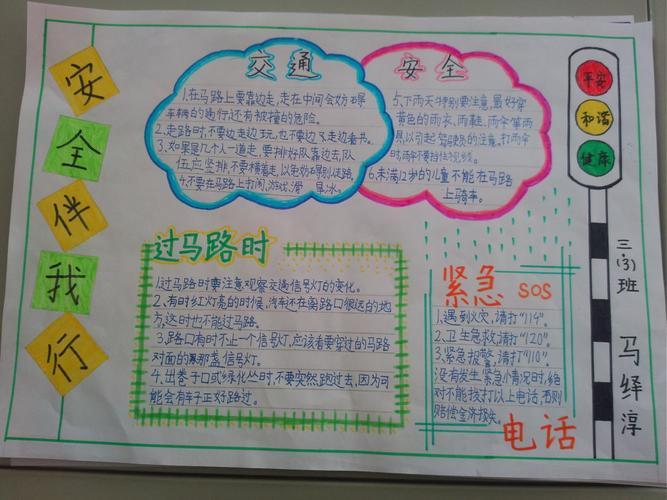 安全伴我行
交通
1.在马路上要靠边走,走在中间会妨碍
车辆的通行还有被撞的危险。
2.走路时,不要边走边玩,也不要边走边看书。
3.如果是几个人一道走,要排好队靠边走,队
伍应竖排,不要横着走,以免妨碍别人走路。
4.不要在马路上打闹、游戏、滑旱冰。
安全
5.下雨天特别要注意,最好穿
黄色的雨衣、雨鞋,雨伞等雨
具以引起驾驶员的注意,打雨伞
时,雨伞不要挡住视线。
6.未满12岁的儿童不能在马路
上骑车。
平安
和谐
健康
三(3)班
马绎淳
过马路时
1.过马路时要注意观察交通信号灯的变化。
2.有时红灯亮的时候,汽车还在离路口很远的地
方,这时也不能过马路。
3.路口有时不止一个信号灯,应该看要穿过的马路
对面的那盏信号灯。
4.出巷子口或绿化丛时,不要突然跑过去,因为可
能会有车子正好路过。
紧急 SOS
1.遇到火灾,请打"119"。
2.卫生急救,请打"120"。
3.紧急报警,请打"110"。
没有发生紧急情况时,绝
对不能拨打以上电话,否则
赔偿经济损失。
电话